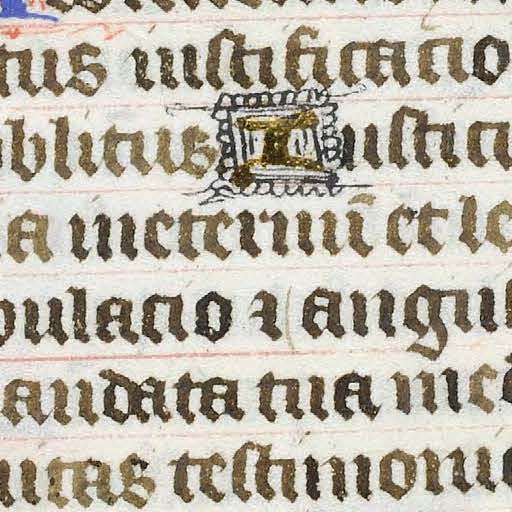 tus iustificacio
oblitus Iustici
a ineternū et le
bulacio ⁊ angus
andata tua med
uitas testimoniu